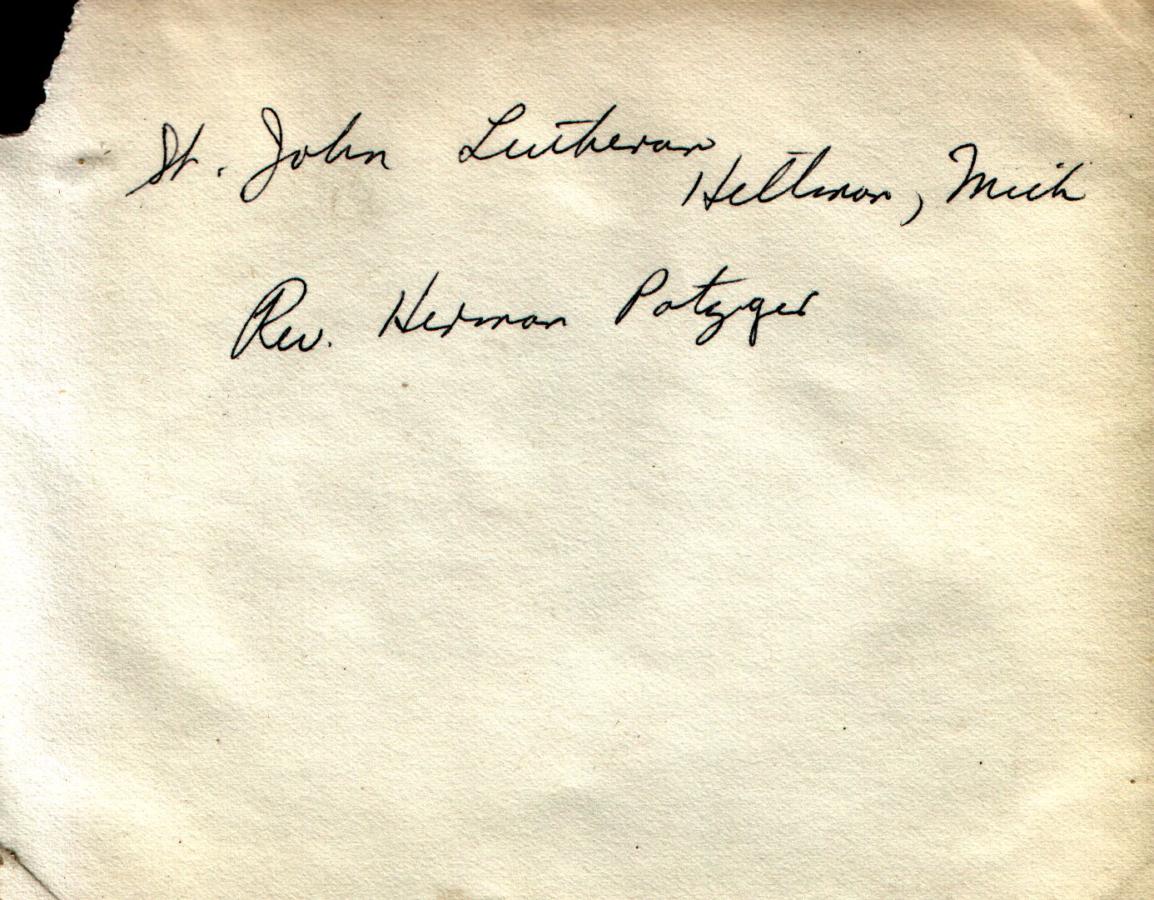 St. John Lutheran
Hellman, Mich
Rev. Herman Potzger